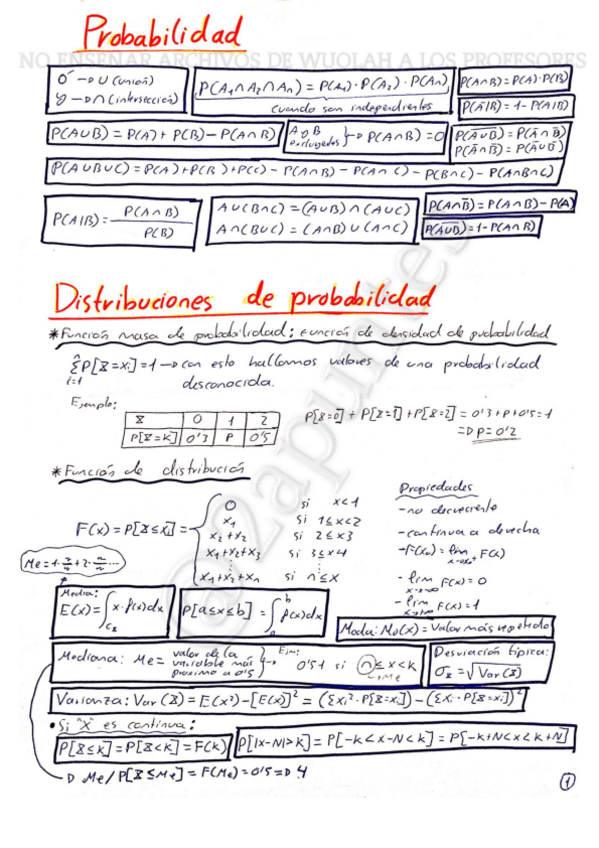 Probabilidad
NO ENSEÑAR ARCHIVOS DE WUOLAH A LOS PROFESORES
O´ → ∪ (unión)
y → ∩ (intersección)
P(A₁∩A₂∩Aₙ) = P(A₁)·P(A₂)·P(Aₙ)
cuando son independientes
P(A∩B)=P(A)·P(B)
P(Ā|B)=1-P(A|B)
P(A∪B) = P(A) + P(B) - P(A∩B)
A y B } → P(A∩B)=0
P(Ā∪B̄)=P(Ā∩B̄)
P(Ā∩B̄)=P(Ā∪B̄)
P(A∪B∪C) = P(A)+P(B)+P(C) - P(A∩B) - P(A∩C) - P(B∩C) - P(A∩B∩C)
P(A|B) = P(A∩B) / P(B)
A∪(B∩C) = (A∪B)∩(A∪C)
A∩(B∪C) = (A∩B)∪(A∩C)
P(A∩B̄)=P(A∩B)-P(A)
P(A∪B)=1-P(A∩B)
Distribuciones de probabilidad
* Función masa de probabilidad: función de densidad de probabilidad
Σ P[X=xᵢ]=1 → con esto hallamos valores de una probabilidad
i=1
desconocida.
Ejemplo:
X 0 1 2
P[X=k] 0'3 P 0'5
P[X=0] + P[X=1] + P[X=2] = 0'3+P+0'5=1
=> P=0'2
* Función de distribución
F(x) = P[X≤xᵢ] =
0 si x<1
x₁ si 1≤x<2
x₁+x₂ si 2≤x3
x₁+x₂+x₃ si 3≤x4
⋮
x₁+x₂+xₙ si n≤x
Propiedades
- no decreciente
- continua a derecha
- F(x₀) = lim F(x)
x→x₀⁺
- lim F(x)=0
x→-∞
- lim F(x)=1
x→+∞
Media:
E(x)=∫ x·f(x)dx
P[a≤x≤b] = ∫ₐᵇ f(x)dx
Moda: M₀(x) = Valor más repetido
Mediana: Me = valor de la variable más proximo a 0'5 } →
Ejm:
0'51 si n≤x<k
→Me
Desviación típica:
σₓ = √Var(X)
Varianza: Var(X) = E(x²) - [E(x)]² = (Σxᵢ²·P[X=xᵢ]) - (Σxᵢ·P[X=xᵢ])²
• Si "X" es continua:
P[X≤k]=P[X<k]=F(k)
P[|x-N|>k] = P[-k<x-N<k] = P[-k+N<x<k+N]
→ Me/P[X≤Me] = F(Me)=0'5 => 4
1
@2apuntes